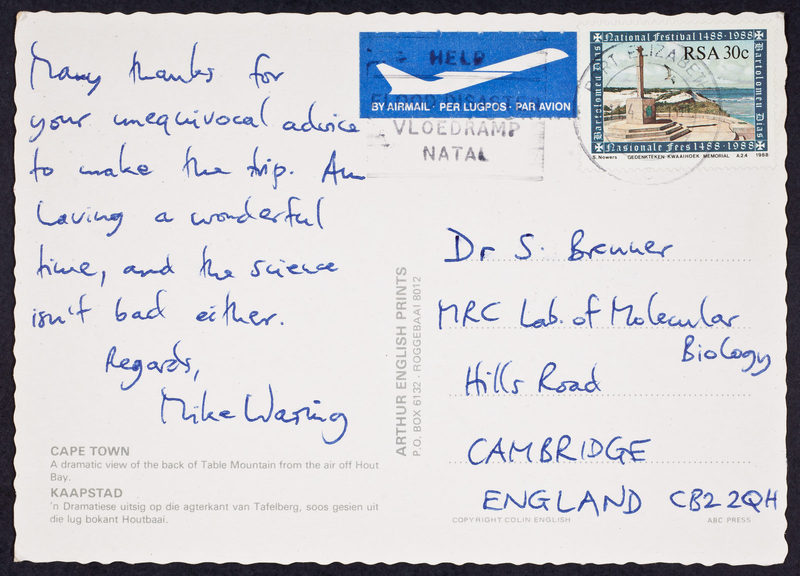 Many thanks for
your unequivocal advice
to make the trip. Am
having a wonderful
time, and the science
isn't bad either.
Regards,
Mike Waring
CAPE TOWN
A dramatic view of the back of Table Mountain from the air off Hout
Bay.
KAAPSTAD
'n Dramatiese uitsig op die agterkant van Tafelberg, soos gesien uit
die lug bokant Houtbaai.
ARTHUR ENGLISH PRINTS
P.O. BOX 6132 · ROGGEBAAI 8012
HELP
BY AIRMAIL · PER LUGPOS · PAR AVION
VLOEDRAMP
NATAL
PORT ELIZABETH
National Festival 1488-1988
Bartolomeu Dias
RSA 30c
Bartolomeu Dias
Nasionale Fees 1488-1988
S. Nowers GEDENKTEKEN · KWAAIHOEK · MEMORIAL A 2.4 1988
Dr S. Brenner
MRC Lab. of Molecular
Biology
Hills Road
CAMBRIDGE
ENGLAND CB2 2QH
COPYRIGHT COLIN ENGLISH
ABC PRESS